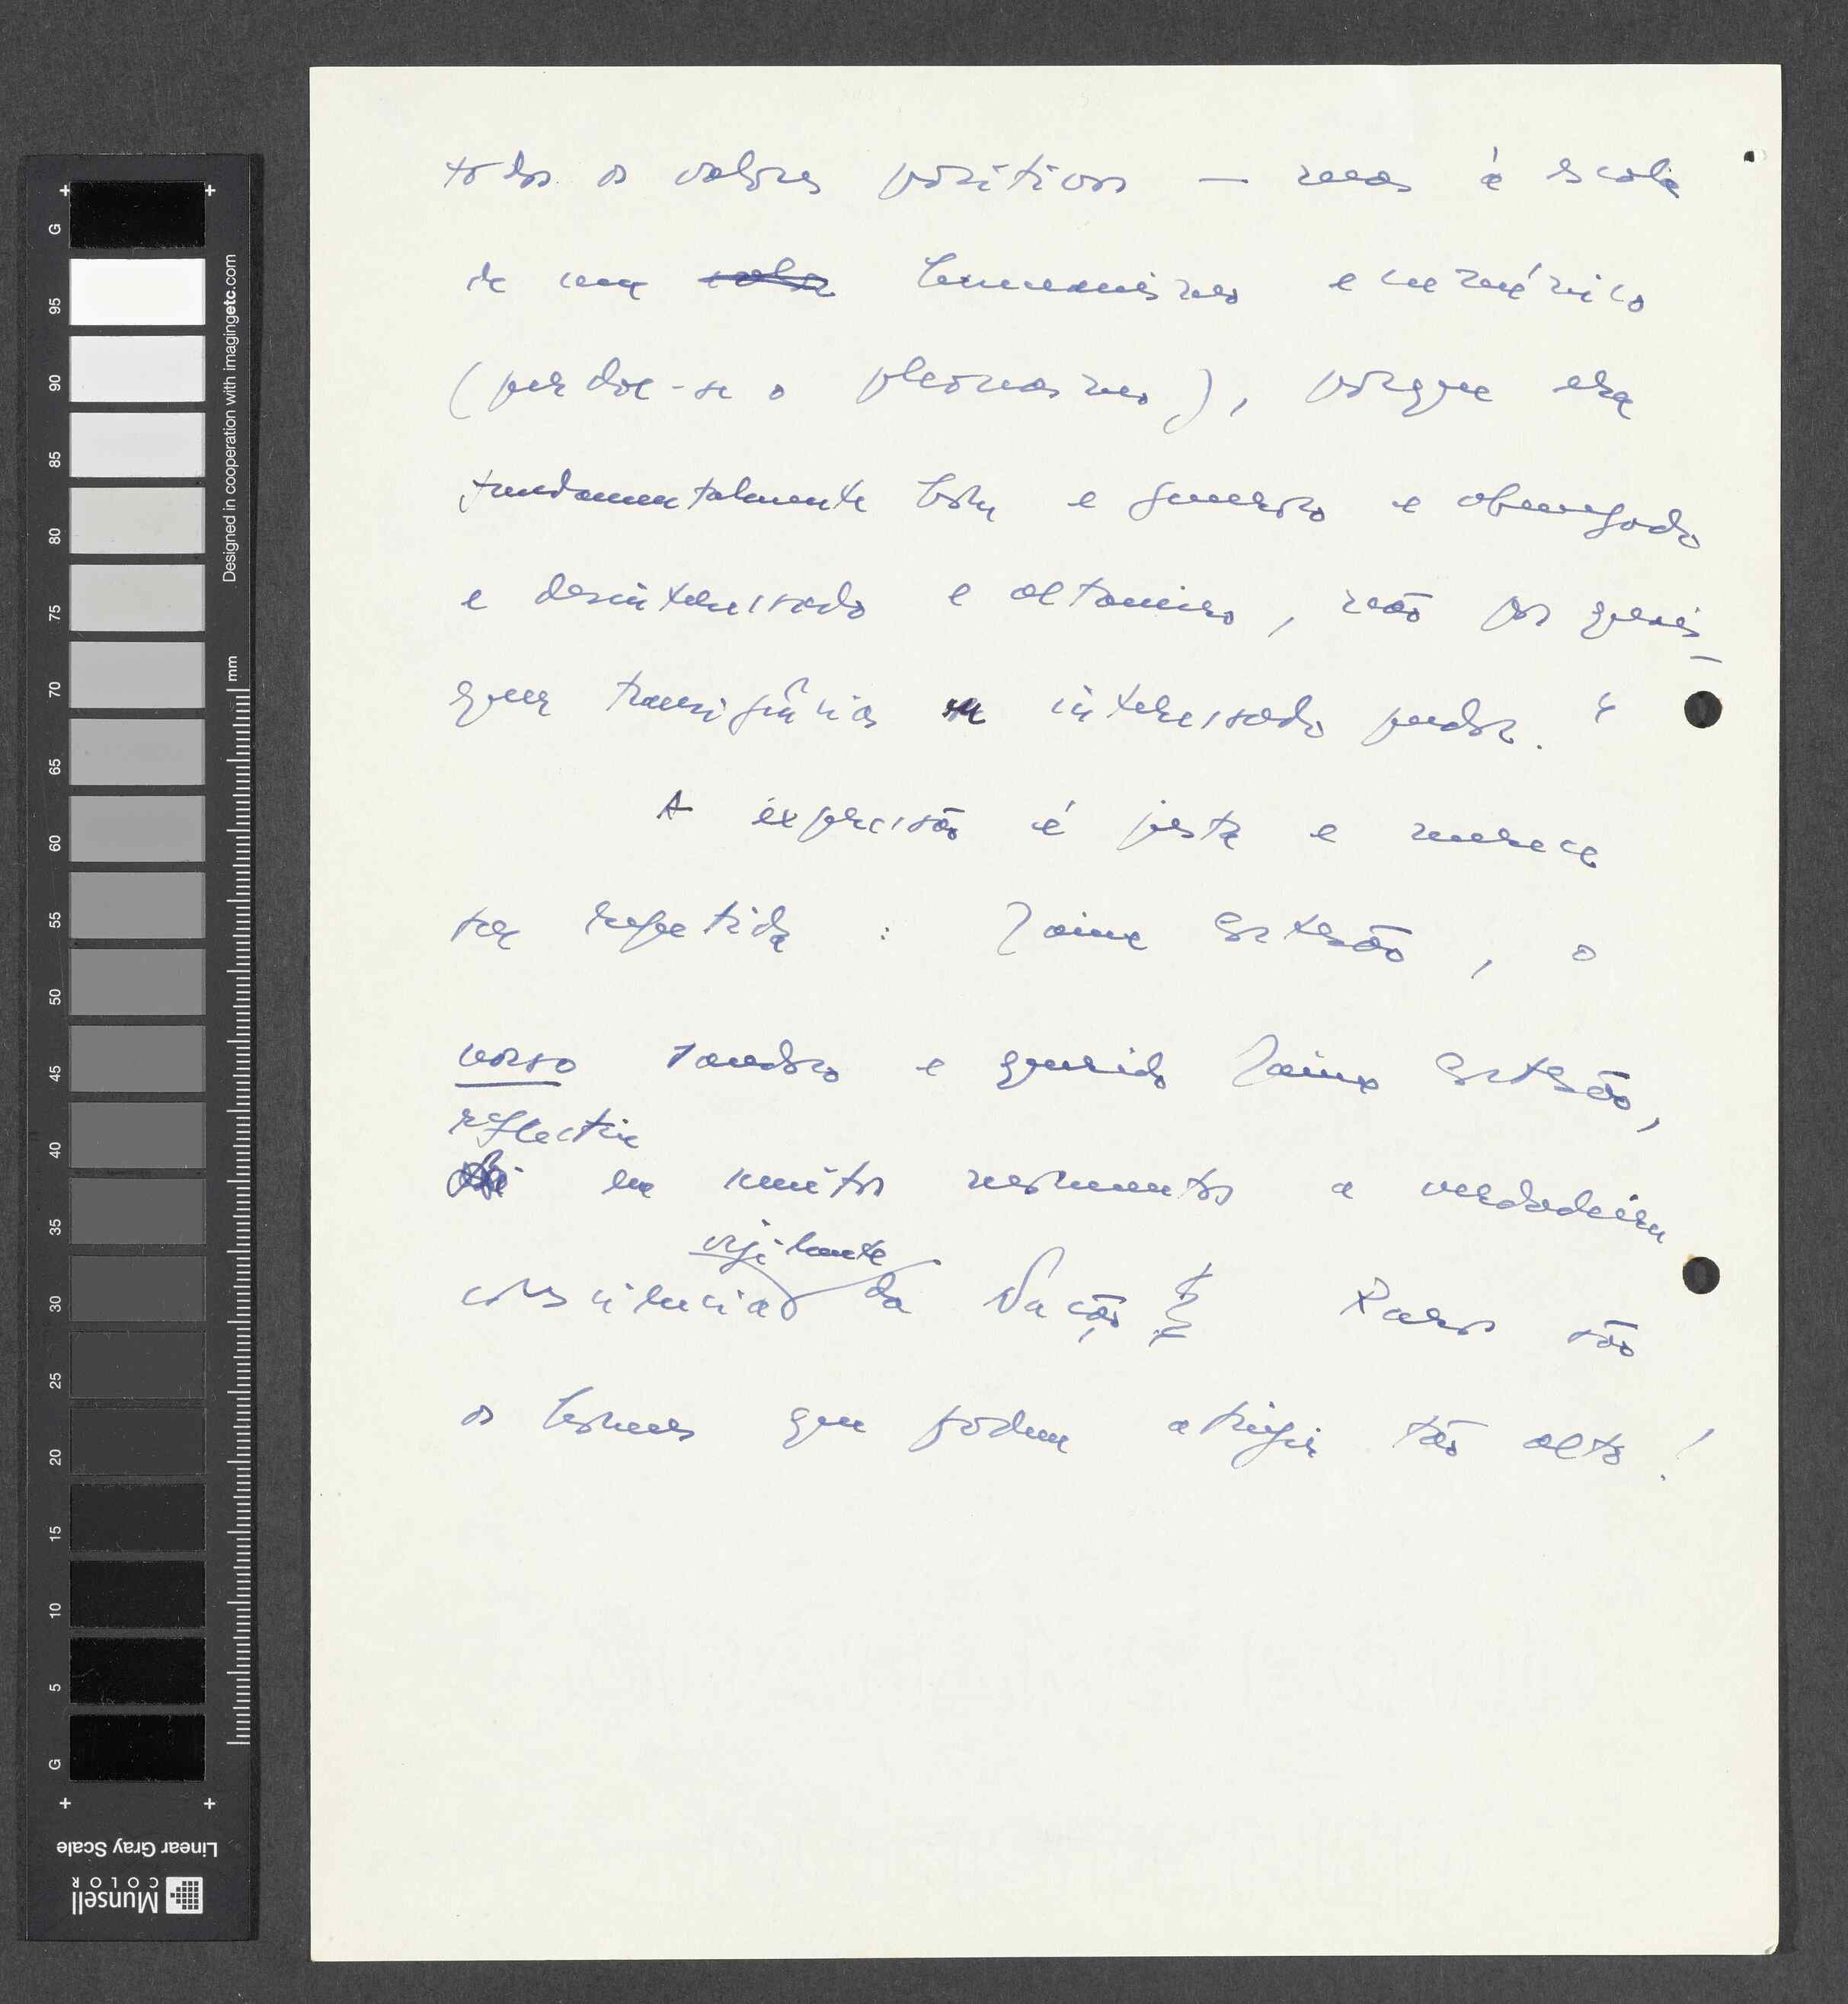 todos os valores positivos — mas à escala
de um humanismo ecuménico
(perdoe-se o pleonasmo), porque era
fundamentalmente bom e generoso e abnegado
e desinteressado e altaneiro, não por quais-
quer transigências ou interessado pudor."
A expressão é justa e merece
ser repetida: Jaime Cortesão, o
vosso saudoso e querido Jaime Cortesão,
reflectiu
em muitos momentos a verdadeira
vigilante
consciência da Nação. Raros são
os homens que podem atingir tão alto!
G
95
90
85
80
75
70
65
60
55
50
45
40
35
30
25
20
15
10
5
G
Designed in cooperation with imagingetc.com
mm
Linear Gray Scale
Munsell
COLOR